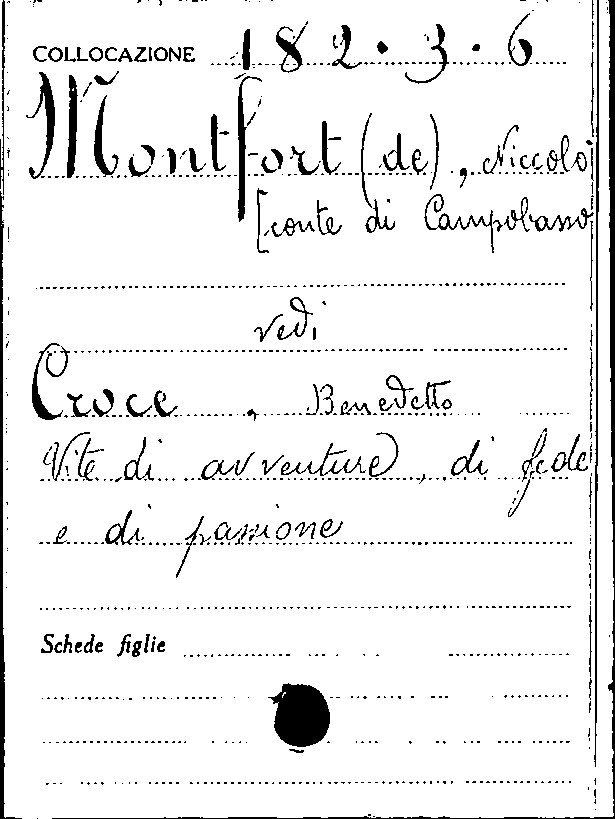 COLLOCAZIONE 182.3.6
Montfort (de), Niccolò
[conte di Campobasso
vedi
Croce, Benedetto
Vite di avventure, di fede
e di passione
Schede figlie